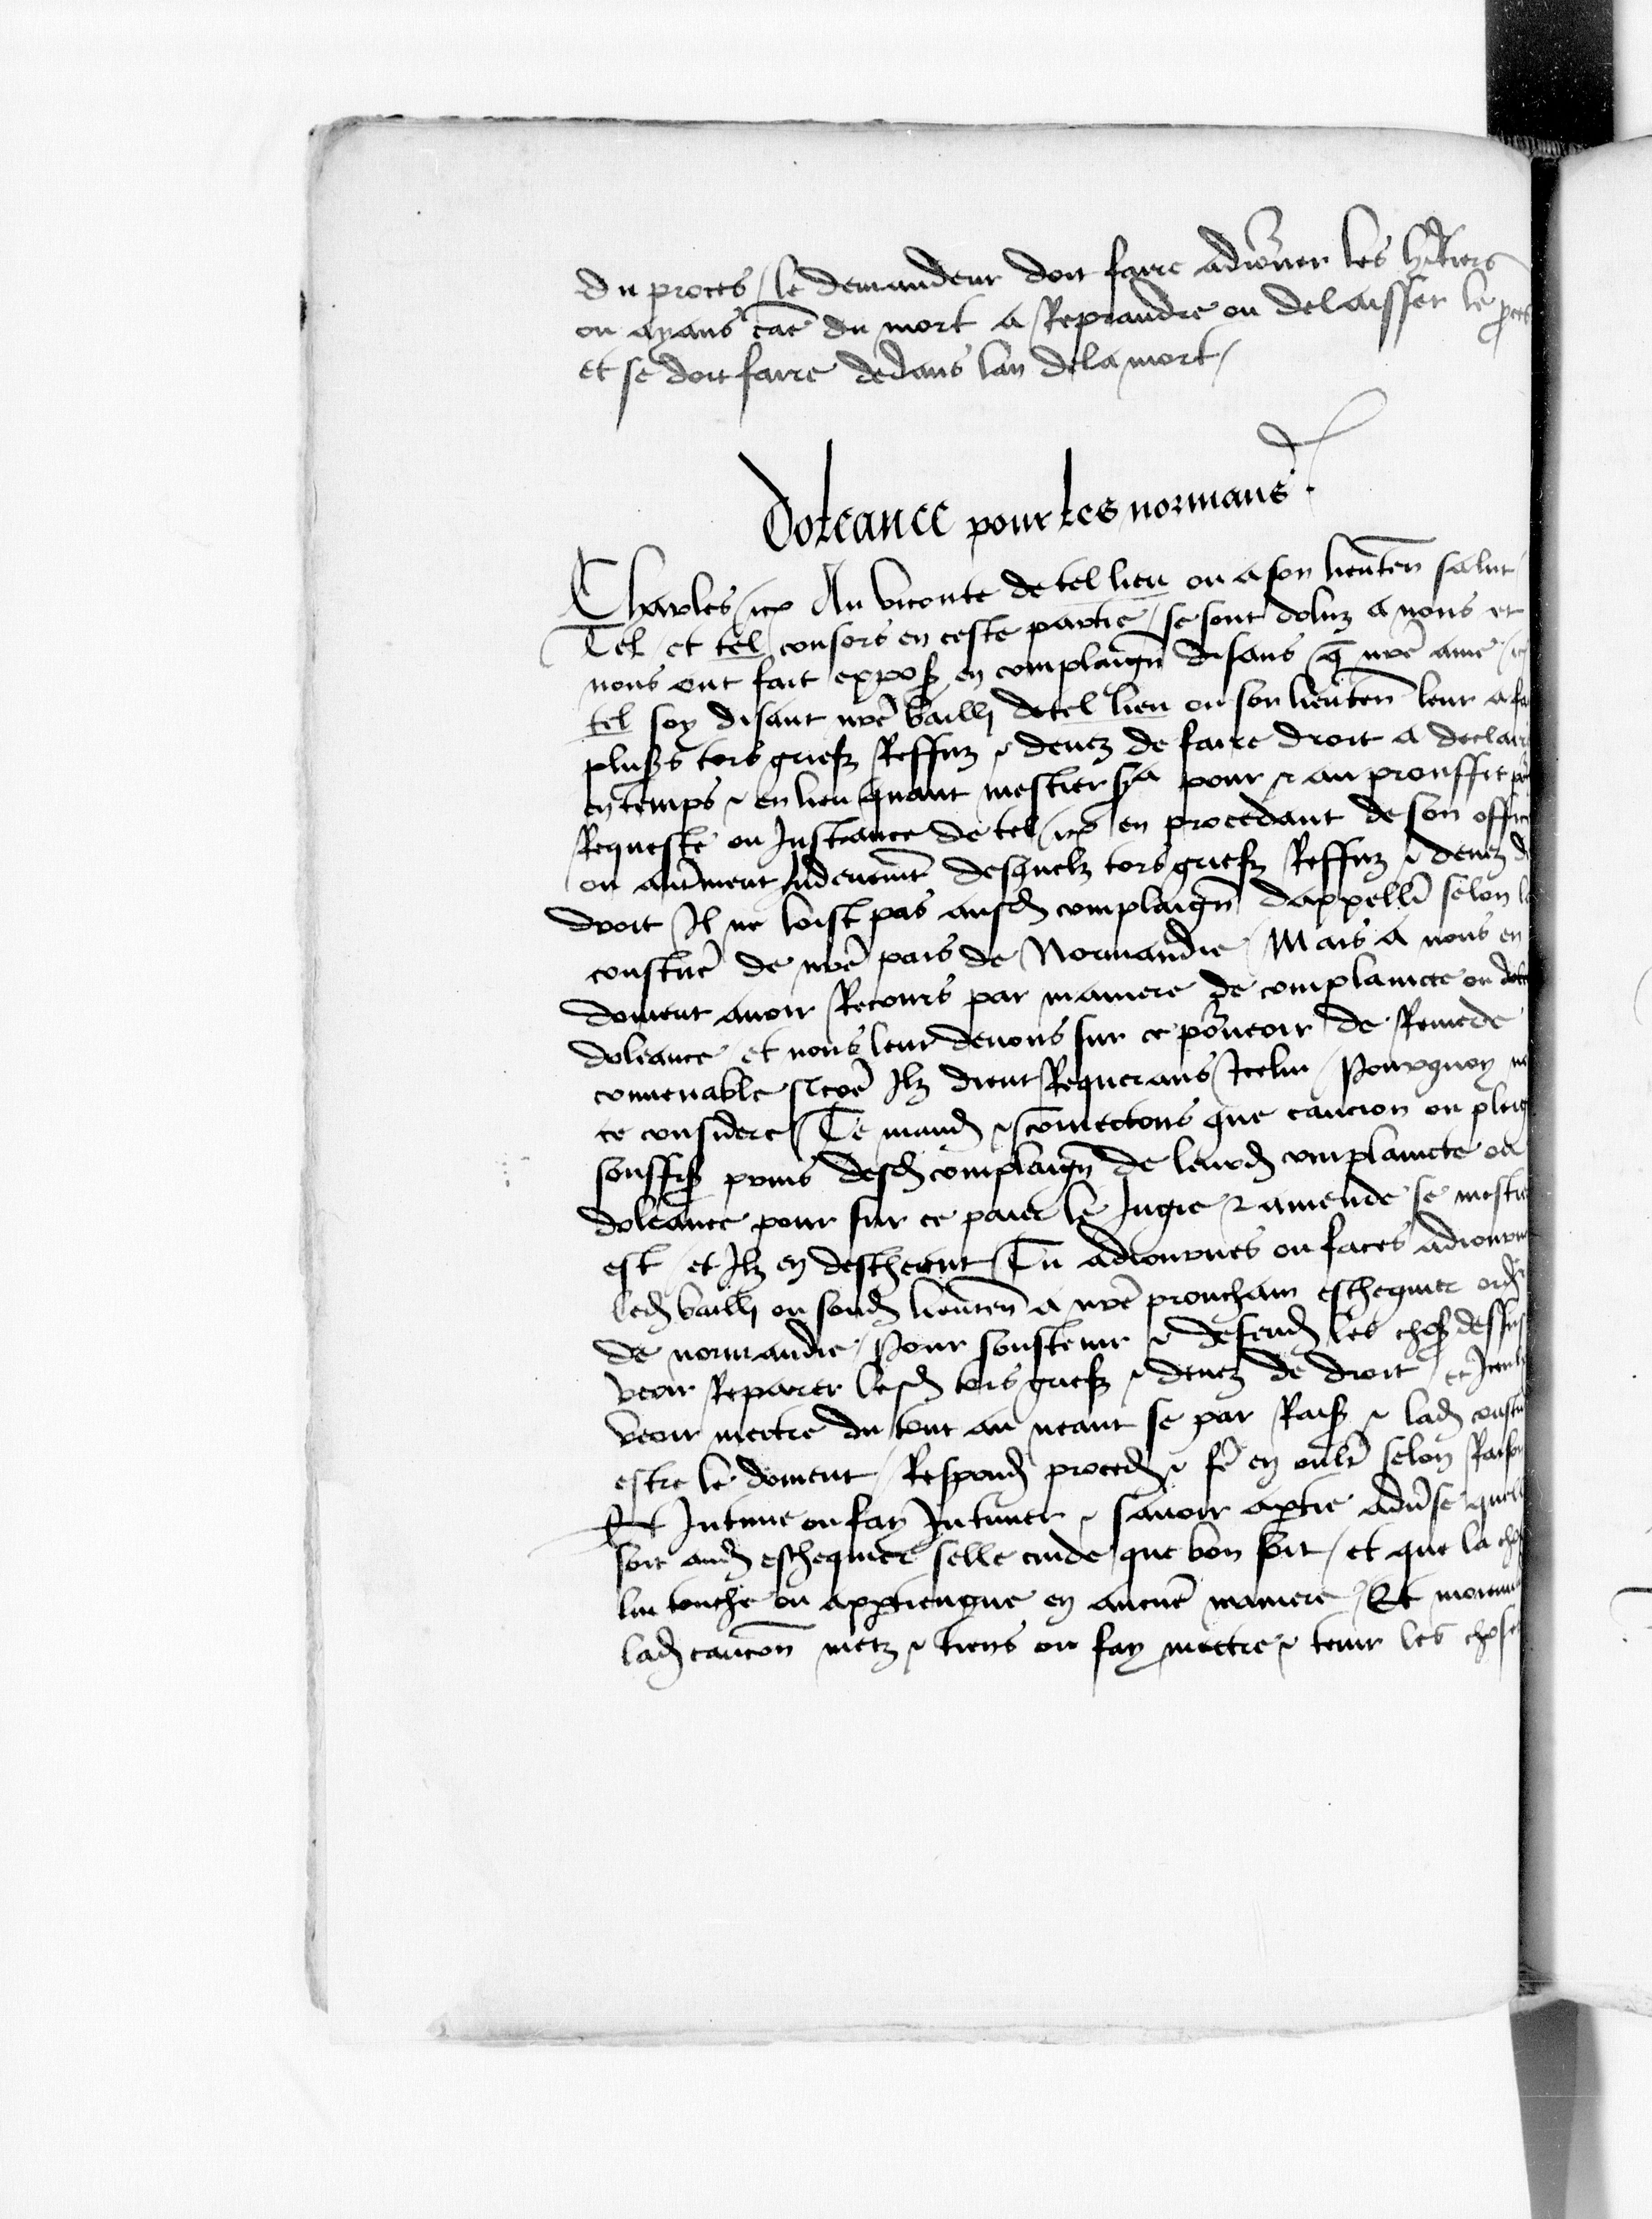 du proces / le demandeur doit faire adiōner les hītiers
ou ayans cāe du mort a Reprandre ou delaisser le pces
et se doit faire dedans lan de la mort /
Doleance pour les normans
Charles &c Au viconte de tel lieu ou a son lieuten̄ salut
Tel et tel consors en ceste partie / se sont doluz a nous et
nous ont fait expos en complaign̄ disans q̄ nr̄e ame
tel soy disant nr̄e bailli de tel lieu ou son lieuten̄ leur a fa
plus̄s tors griefz Reffuz & deuez de faire droit a declair
en temps & en lieu quant mestier sa pour & au prouffit
Requeste ou Instance de tel &c en procedant de son office
ou autrmēnt Indeuemt̄ desquelz tors griefz Reffuz & deuez de
droit Il ne loist pas ausd complaign̄ dappell̄ selon la
coustūe de nr̄e pais de Normandie / Mais a nous en
doiuent auoir Recours par maniere de complaincte ou
doleance et nous leur deuons sur ce pōueoir de Remede
conuenable sicōe Ilz dient Requerans Icelui / Pourquoy
ce considere / Te mand & cōmectons que caucion ou pleg
souffis prins desd complaign̄ de leurd complaincte ou
doleance pour sur ce paier le Jugie & amende se mestier
est et Ilz en descheent / Tu adiournes ou faces adiourn
led bailli ou sond lieuten̄ a nr̄e prouchain eschequier ord
de normandie / Pour soustenir & defend les choses dessus
veoir Reparer lesd tors griefz & deuez de droit / et Iceulx
veoir mectre du tout au neant se par Rais & lad coustu
estre le doiuent / Respond proced & fē en oultr̄ selon Raison
Et Intime ou fay Intimer & sauoir aptie aduerse quelle
soit aud eschequier selle cuide que bon soit / et que la chose
lui touche ou apptiengne en aucūe maniere / Et
lad caucōn metz & tiens ou fay mectre & tenir les choses